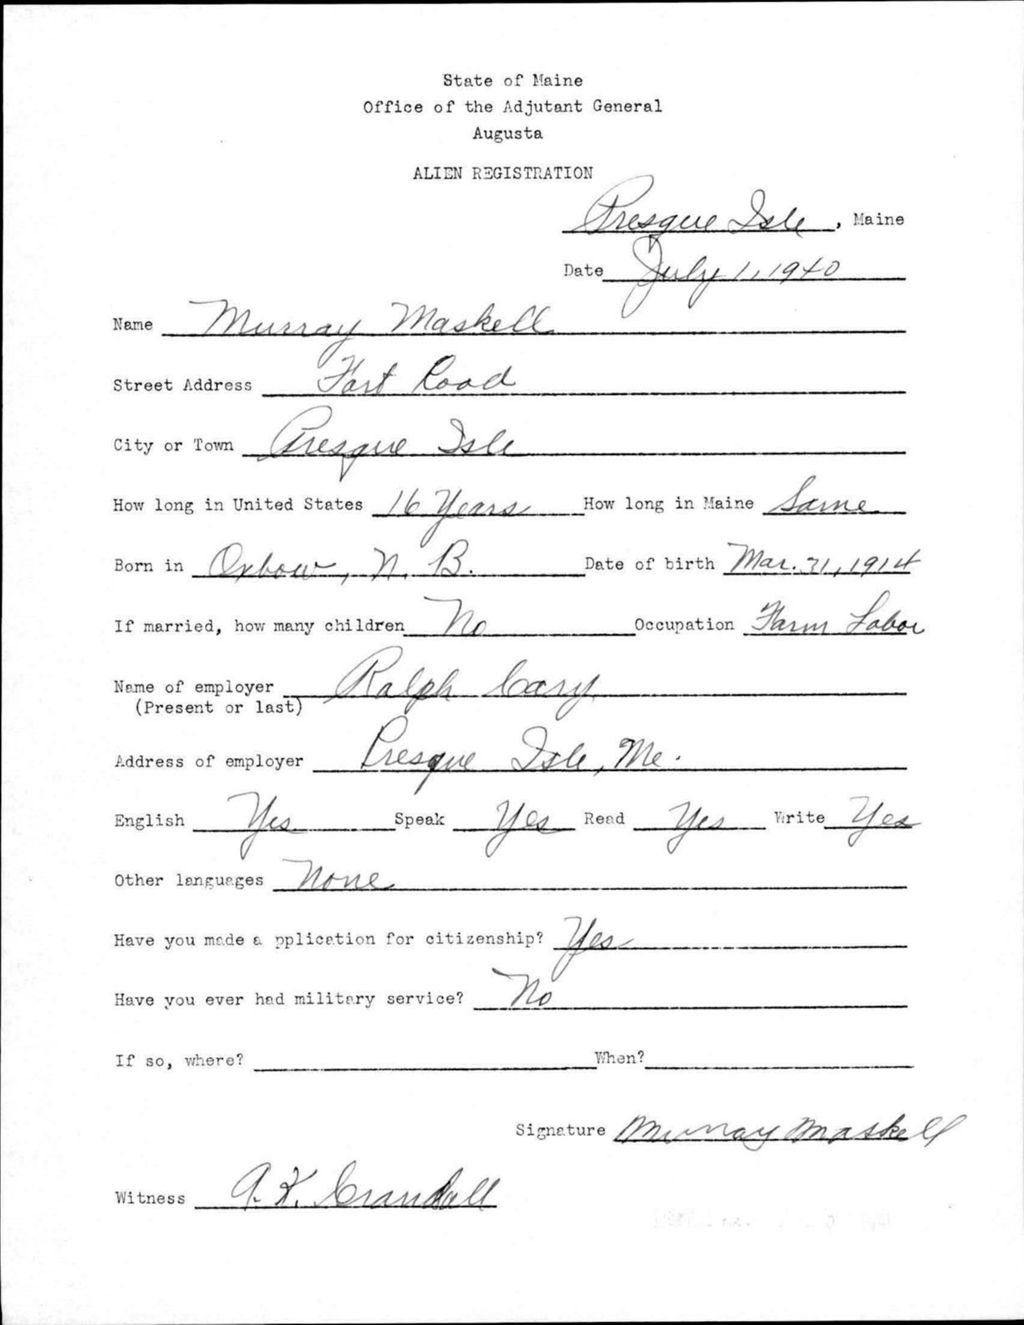 State of Maine
Office of the Adjutant General
Augusta
ALIEN REGISTRATION
Presque Isle, Maine
Date July 1, 1940
Name Murray Maskell
Street Address Fort Road
City or Town Presque Isle
How long in United States 16 Years How long in Maine Same
Born in Oxbow, N. B. Date of birth Mar. 31, 1914
If married, how many children No Occupation Farm Labor
Name of employer Ralph Cary
(Present or last)
Address of employer Presque Isle, Me.
English Yes Speak Yes Read Yes Write Yes
Other languages None
Have you made a pplication for citizenship? Yes
Have you ever had military service? No
If so, where? When?
Signature Murray Maskell
Witness A. K. Crandall